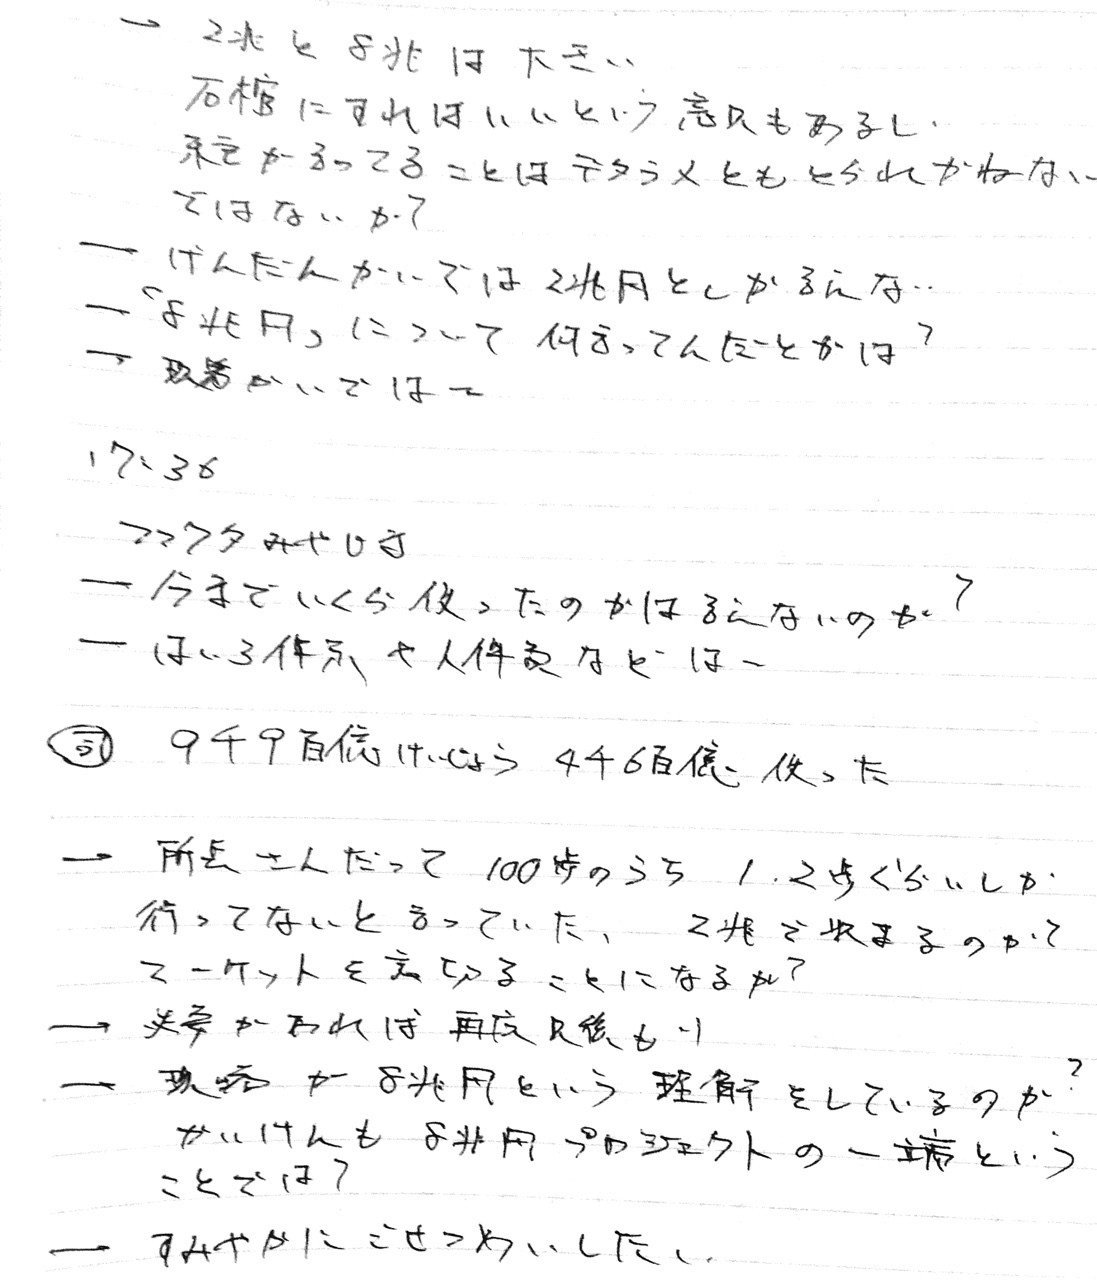 → 2兆と8兆は大きい
石棺にすればいいという意見もあるし、
東電が言ってることはデタラメともとられかねない
ではないか?
― げんだんかいでは2兆円としか言えない
― 「8兆円」について何言ってんだとかは?
→ 現段かいでは ―
17:36
フクタ みやじま
― 今までいくら使ったのかは言えないのか?
― はいろ や人件費などは ―
㊂ 9千9百億けいじょう 4千6百億 使った
→ 所長さんだって100歩のうち 1.2歩ぐらいしか
行ってないと言っていた、2兆で収まるのか?
マーケットを裏切ることになるか?
→ 必要があれば再度見積もり
→ 現場が8兆円という理解をしているのか?
かいけんも8兆円プロジェクトの一端という
ことでは?
→ すみやかにごせつめいしたい